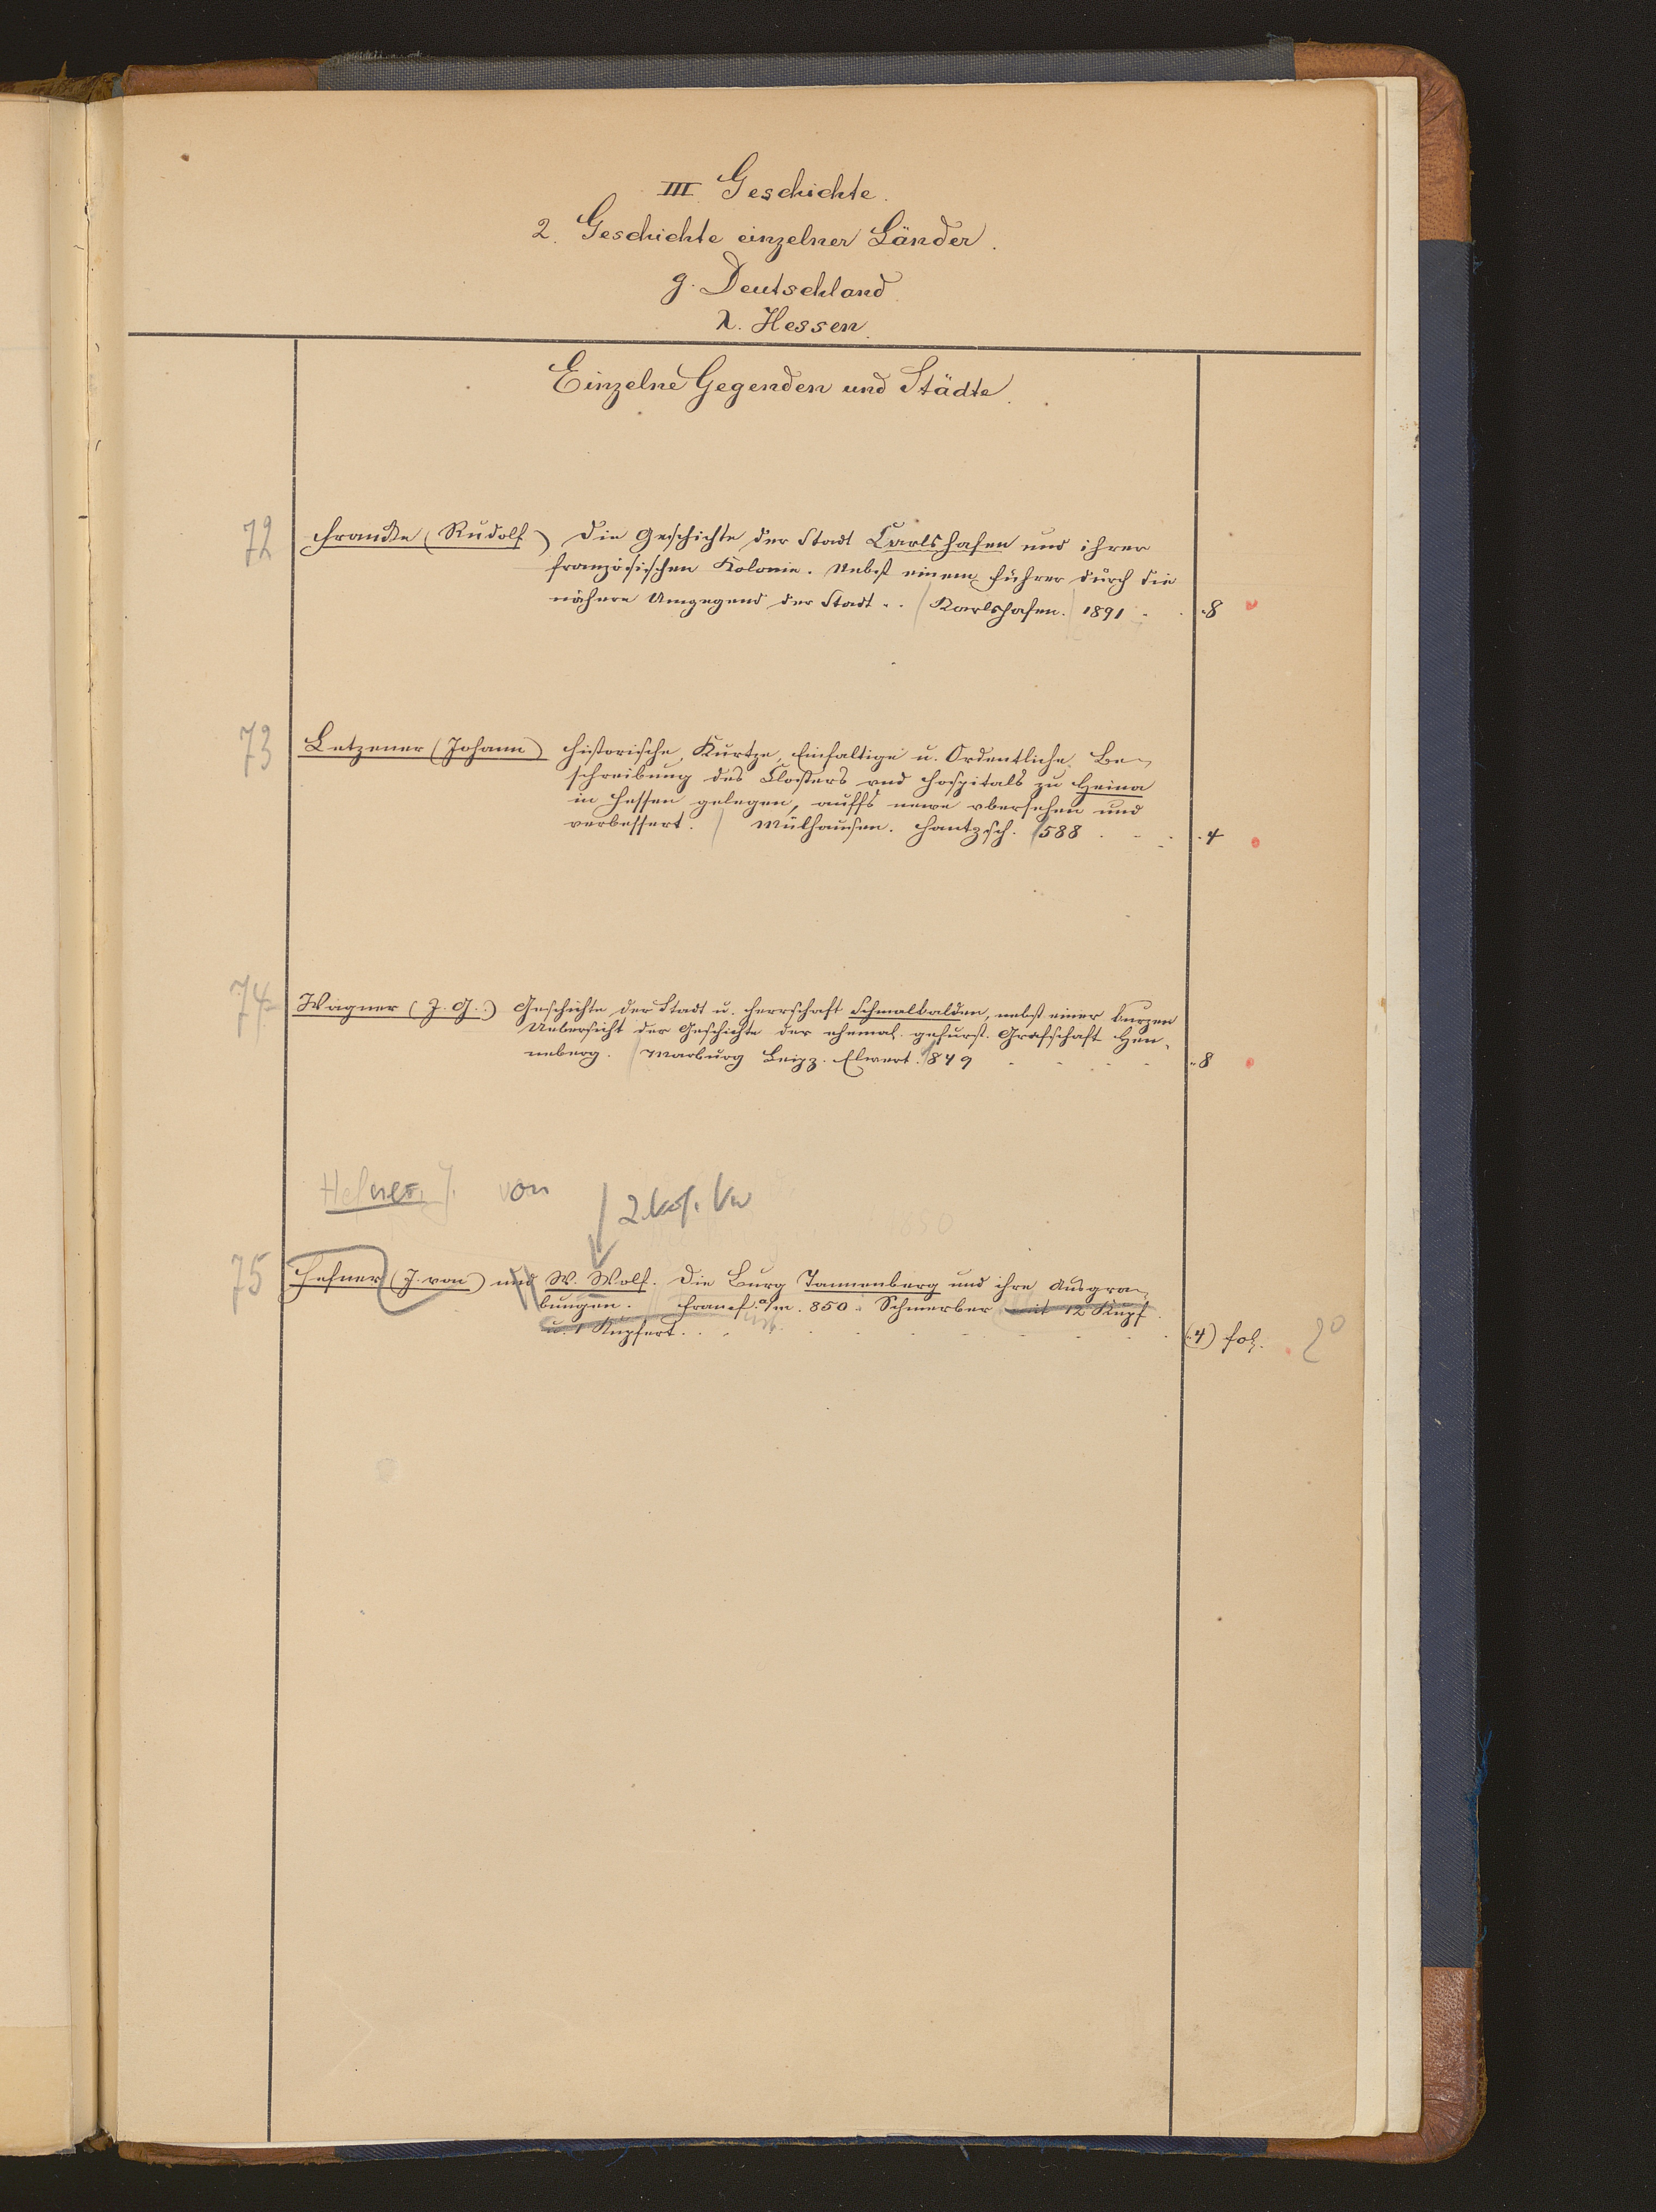 III. Geschichte.
2. Geschichte einzelner Länder.
g. Deutschland
λ. Hessen.
Einzelne Gegenden und Städte.
72 Francke (Rudolf) Die Geschichte der Stadt Carlshafen und ihrer
französischen Kolonie. Nebst einem Führer durch die
nähere Umgegend der Stadt. . Karlshafen. 1891 . . 8
73 Letzener (Johann) Historische, Kurtze, Einfaltige u. Ordentliche Be-
schreibung des Closters vnd Hospitals zu Heina
in Hessen gelegen, auffs newe vbersehen und
verbessert. Mülhausen. Hantzsch. 1588 . . . 4
74 Wagner (J. G.) Geschichte der Stadt u. Herrschaft Schmalkalden, nebst einer kurzen
Uebersicht der Geschichte der ehemal. gefürst. Grafschaft Hen-
neberg. Marburg Leipz. Elwert. 1849 . . . . 8
Hefner, J. von
1850
75 Hefner (J. von) und W. Wolf. Die Burg Tannenberg und ihre Ausgra-
bungen. Francf. a/m. 850. Schmerber mit 12 Kupf
u. 1 Kupfert. . . (4) fol. 2°